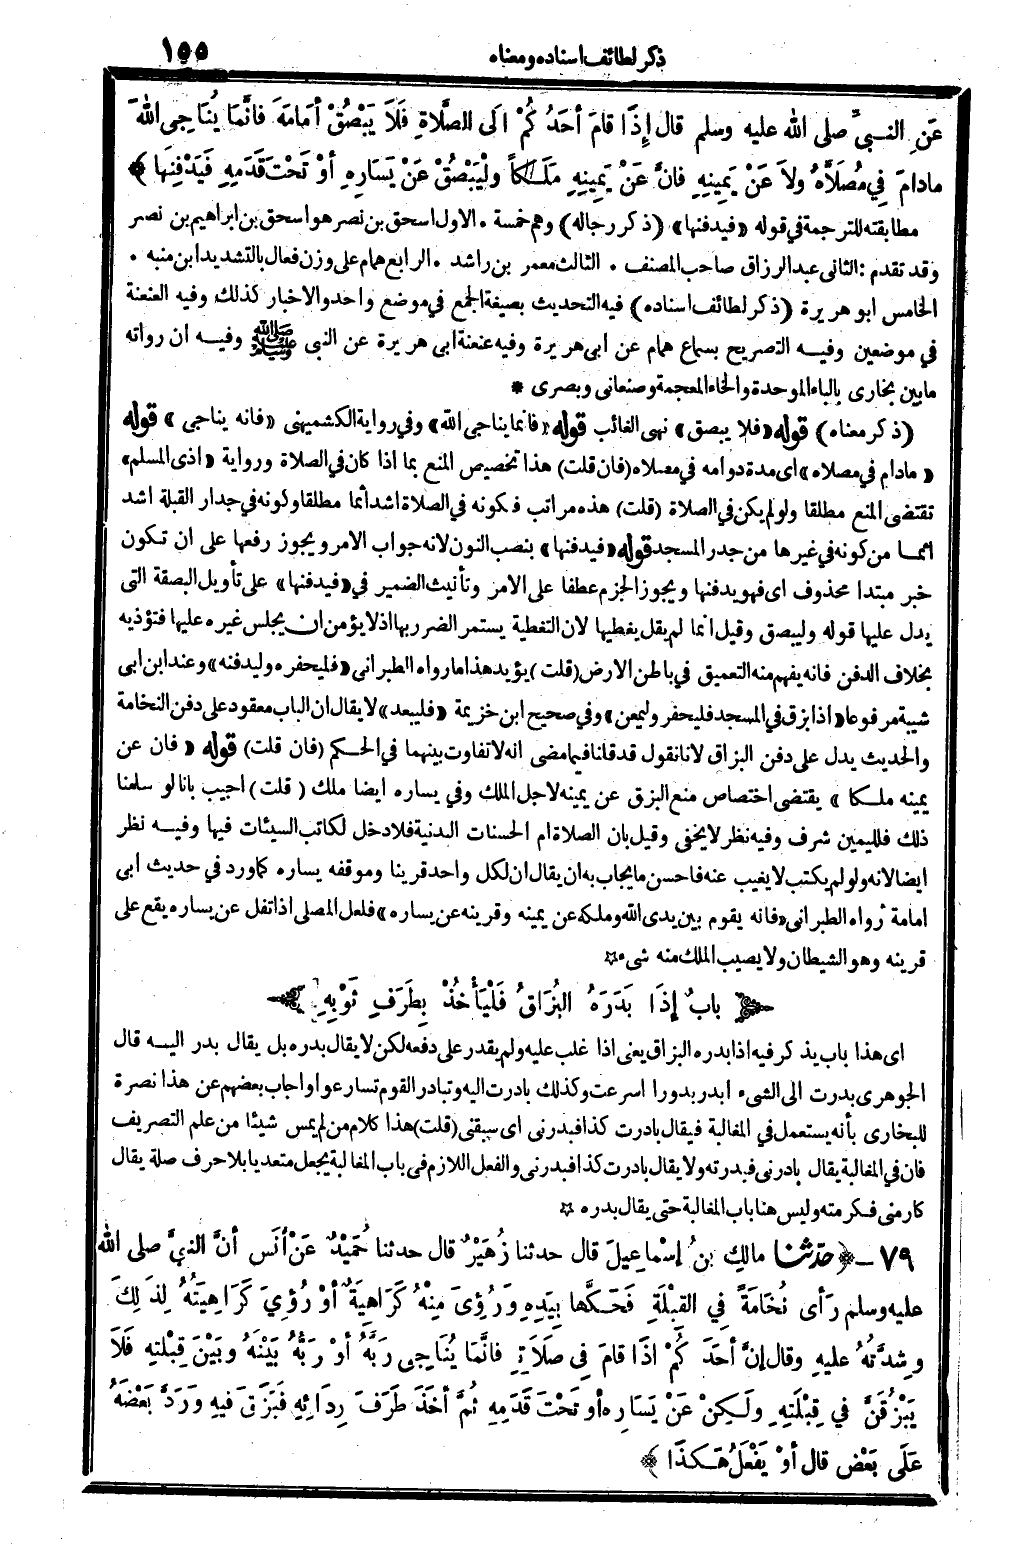 ذكر لطائف اسناده ومعناه ١٥٥
عَنِ النبيِّ صلى الله عليه وسلم قال إِذَا قامَ أحَدُكُمْ الَى الصَّلَاةِ فَلَا يَبْصُقْ أمَامَهُ فَانَّمَا يُنَاجِى اللهَ
مادامَ فِي مُصَلَّاهُ ولَا عَنْ يَمِينِهِ فانَّ عَنْ يَمِينِهِ مَلَكاً ولْيَبْصُقْ عَنْ يَسَارِهِ أوْ تَحْتَ قَدَمِهِ فَيَدْفِنُها ﴾
مطابقته للترجمة في قوله «فيدفنها» (ذكر رجاله) وهم خمسة • الاول اسحق بن نصر هو اسحق بن ابراهيم بن نصر
وقد تقدم : الثانى عبد الرزاق صاحب المصنف • الثالث معمر بن راشد • الرابع همام على وزن فعال بالتشديد ابن منبه •
الخامس ابو هريرة (ذكر لطائف اسناده) فيه التحديث بصيغة الجمع في موضع واحد والاخبار كذلك وفيه العنعنة
في موضعين وفيه التصريح بسماع همام عن ابى هريرة وفيه عنعنة ابى هريرة عن النبى ﷺ وفيه ان رواته
ما بين بخارى بالباء الموحدة والخاء المعجمة وصنعانى وبصرى *
(ذكر معناه) قوله «فلا يبصق» نهى الغائب قوله «فانما يناجى الله» وفي رواية الكشميهنى «فانه يناجى» قوله
«مادام في مصلاه» اى مدة دوامه في مصلاه (فان قلت) هذا تخصيص المنع بما اذا كان في الصلاة ورواية «اذى المسلم»
تقتضى المنع مطلقا ولو لم يكن في الصلاة (قلت) هذه مراتب فكونه في الصلاة اشد أثما مطلقا وكونه في جدار القبلة اشد
اثما من كونه في غيرها من جدر المسجد قوله «فيدفنها» بنصب النون لانه جواب الامر ويجوز رفعها على ان تكون
خبر مبتدا محذوف اى فهو يدفنها ويجوز الجزم عطفا على الامر وتأنيث الضمير في «فيدفنها» على تأويل البصقة التى
يدل عليها قوله وليبصق وقيل انما لم يقل يغطيها لان التغطية يستمر الضرر بها اذ لا يؤمن ان يجلس غيره عليها فتؤذيه
بخلاف الدفن فانه يفهم منه التعميق في باطن الارض (قلت) يؤيد هذا ما رواه الطبرانى «فليحفره وليدفنه» وعند ابن ابى
شيبة مرفوعا «اذا بزق في المسجد فليحفر وليمعن» وفي صحيح ابن خزيمة «فليبعد» لا يقال ان الباب معقود على دفن النخامة
والحديث يدل على دفن البزاق لانا نقول قد قلنا فيما مضى انه لا تفاوت بينهما في الحكم (فان قلت) قوله «فان عن
يمينه ملكا» يقتضى اختصاص منع البزق عن يمينه لاجل الملك وفي يساره ايضا ملك (قلت) اجيب بانا لو سلمنا
ذلك فلليمين شرف وفيه نظر لا يخفى وقيل بان الصلاة ام الحسنات البدنية فلا دخل لكاتب السيئات فيها وفيه نظر
ايضا لانه ولو لم يكتب لا يغيب عنه فاحسن ما يجاب به ان يقال ان لكل واحد قرينا وموقفه يساره كما ورد في حديث ابى
امامة رواه الطبرانى «فانه يقوم بين يدى الله وملكه عن يمينه وقرينه عن يساره» فلعل المصلى اذا تفل عن يساره يقع على
قرينه وهو الشيطان ولا يصيب الملك منه شىء *
بابُ إِذَا بَدَرَهُ البُزَاقُ فَلْيَأْخُذْ بِطَرَفِ ثَوْبِهِ
اى هذا باب يذكر فيه اذا بدره البزاق يعنى اذا غلب عليه ولم يقدر على دفعه لكن لا يقال بدره بل يقال بدر اليه قال
الجوهرى بدرت الى الشىء ابدر بدورا اسرعت وكذلك بادرت اليه وتبادر القوم تسارعوا واجاب بعضهم عن هذا نصرة
للبخارى بأنه يستعمل في المغالبة فيقال بادرت كذا فبدرنى اى سبقنى (قلت) هذا كلام من لم يمس شيئا من علم التصريف
فان في المغالبة يقال بادرنى فبدرته ولا يقال بادرت كذا فبدرنى والفعل اللازم فى باب المغالبة يجعل متعديا بلا حرف صلة يقال
كارمنى فكرمته وليس هنا باب المغالبة حتى يقال بدره *
٧٩ - ﴿ حدثنا مالكُ بنُ إسْماعِيلَ قال حدثنا زُهَيْرٌ قال حدثنا حُمَيْدٌ عَنْ أنَسٍ أنَّ النبيَّ صلى الله
عليه وسلم رَأى نُخَامَةً فِي القِبْلَةِ فَحَكَّها بِيَدِهِ وَرُؤِىَ مِنْهُ كَرَاهِيَةٌ أوْ رُؤِيَ كَرَاهِيَتُهُ لِذَلِكَ
وشِدَّتُهُ عليهِ وقال إنَّ أحَدَكُمْ اذَا قامَ فِى صَلَاتِهِ فانَّمَا يُنَاجِى رَبَّهُ أوْ رَبُّهُ بَيْنَهُ وبَيْنَ قِبْلَتِهِ فَلَا
يَبْزُقَنَّ في قِبْلَتِهِ ولَكِنْ عَنْ يَسَارِهِ أو تَحْتَ قَدَمِهِ ثُمَّ أخَذَ طَرَفَ رِدَائِهِ فَبَزَقَ فيهِ وَرَدَّ بَعْضَهُ
عَلَى بَعْضٍ قال أوْ يَفْعَلُ هَكَذَا ﴾